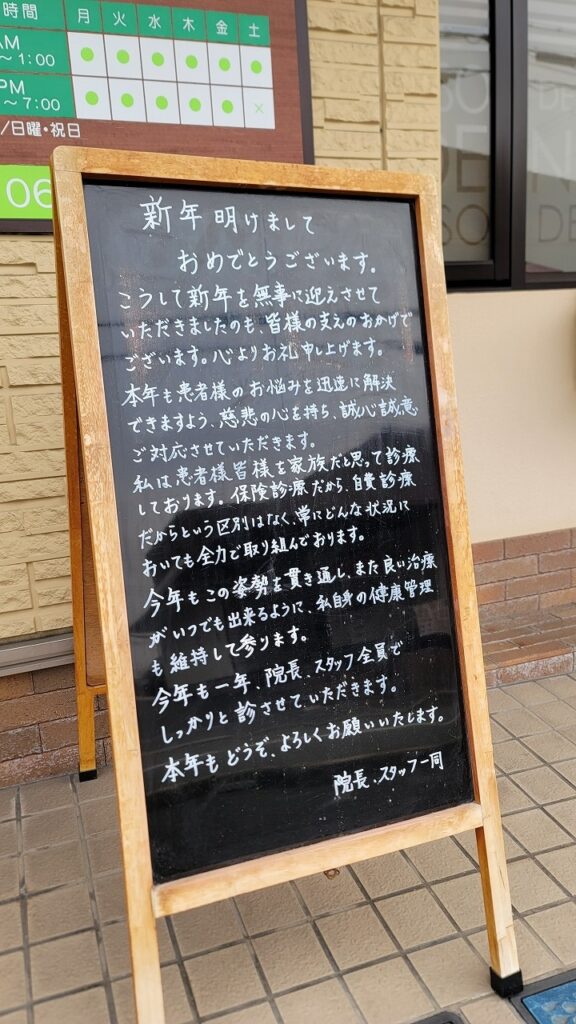 時間 月 火 水 木 金 土
AM
～1:00 ● ● ● ● ● ●
PM
～7:00 ● ● ● ● ● ×
/日曜・祝日
06
新年明けまして
おめでとうございます。
こうして新年を無事に迎えさせて
いただきましたのも、皆様の支えのおかげで
ございます。心よりお礼申し上げます。
本年も患者様のお悩みを迅速に解決
できますよう、慈悲の心を持ち、誠心誠意
ご対応させていただきます。
私は患者様皆様を家族だと思って診療
しております。保険診療だから、自費診療
だからという区別はなく、常にどんな状況に
おいても全力で取り組んでおります。
今年もこの姿勢を貫き通し、また良い治療
がいつでも出来るように、私自身の健康管理
も維持して参ります。
今年も一年、院長、スタッフ全員で
しっかりと診させていただきます。
本年もどうぞ、よろしくお願いいたします。
院長、スタッフ一同